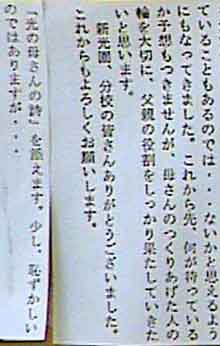 ていることもあるのでは・・ないかと思えるよう
にもなってきました。これから先、何が待っている
か予想もつきませんが、母さんのつくりあげた人の
輪を大切に、父親の役割をしっかり果たしていきた
いと思います。
新光園、分校の皆さんありがとうございました。
これからもよろしくお願いします。
「光の母さんの詩」を添えます。少し、恥ずかしい
のではありますが・・・